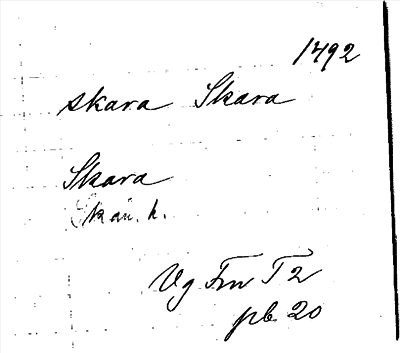 1492
skara Skara
Skara
Skån. h.
Vg Fm T 2
pb 20